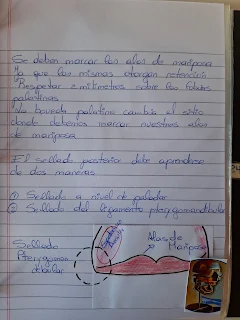 Se deben marcar las alas de mariposa
ya que las mismas otorgan retención
Respetar 2 milímetros sobre los rebates
palatinos
La bóveda palatina cambia el sitio
donde debemos marcar nuestras alas
de mariposa
El sellado posterior debe aprenderse
de dos maneras
① Sellado a nivel de paladar
② Sellado del ligamento pterygomandibular
Sellado
Pterygoman
dibular
Alas de
Mariposa